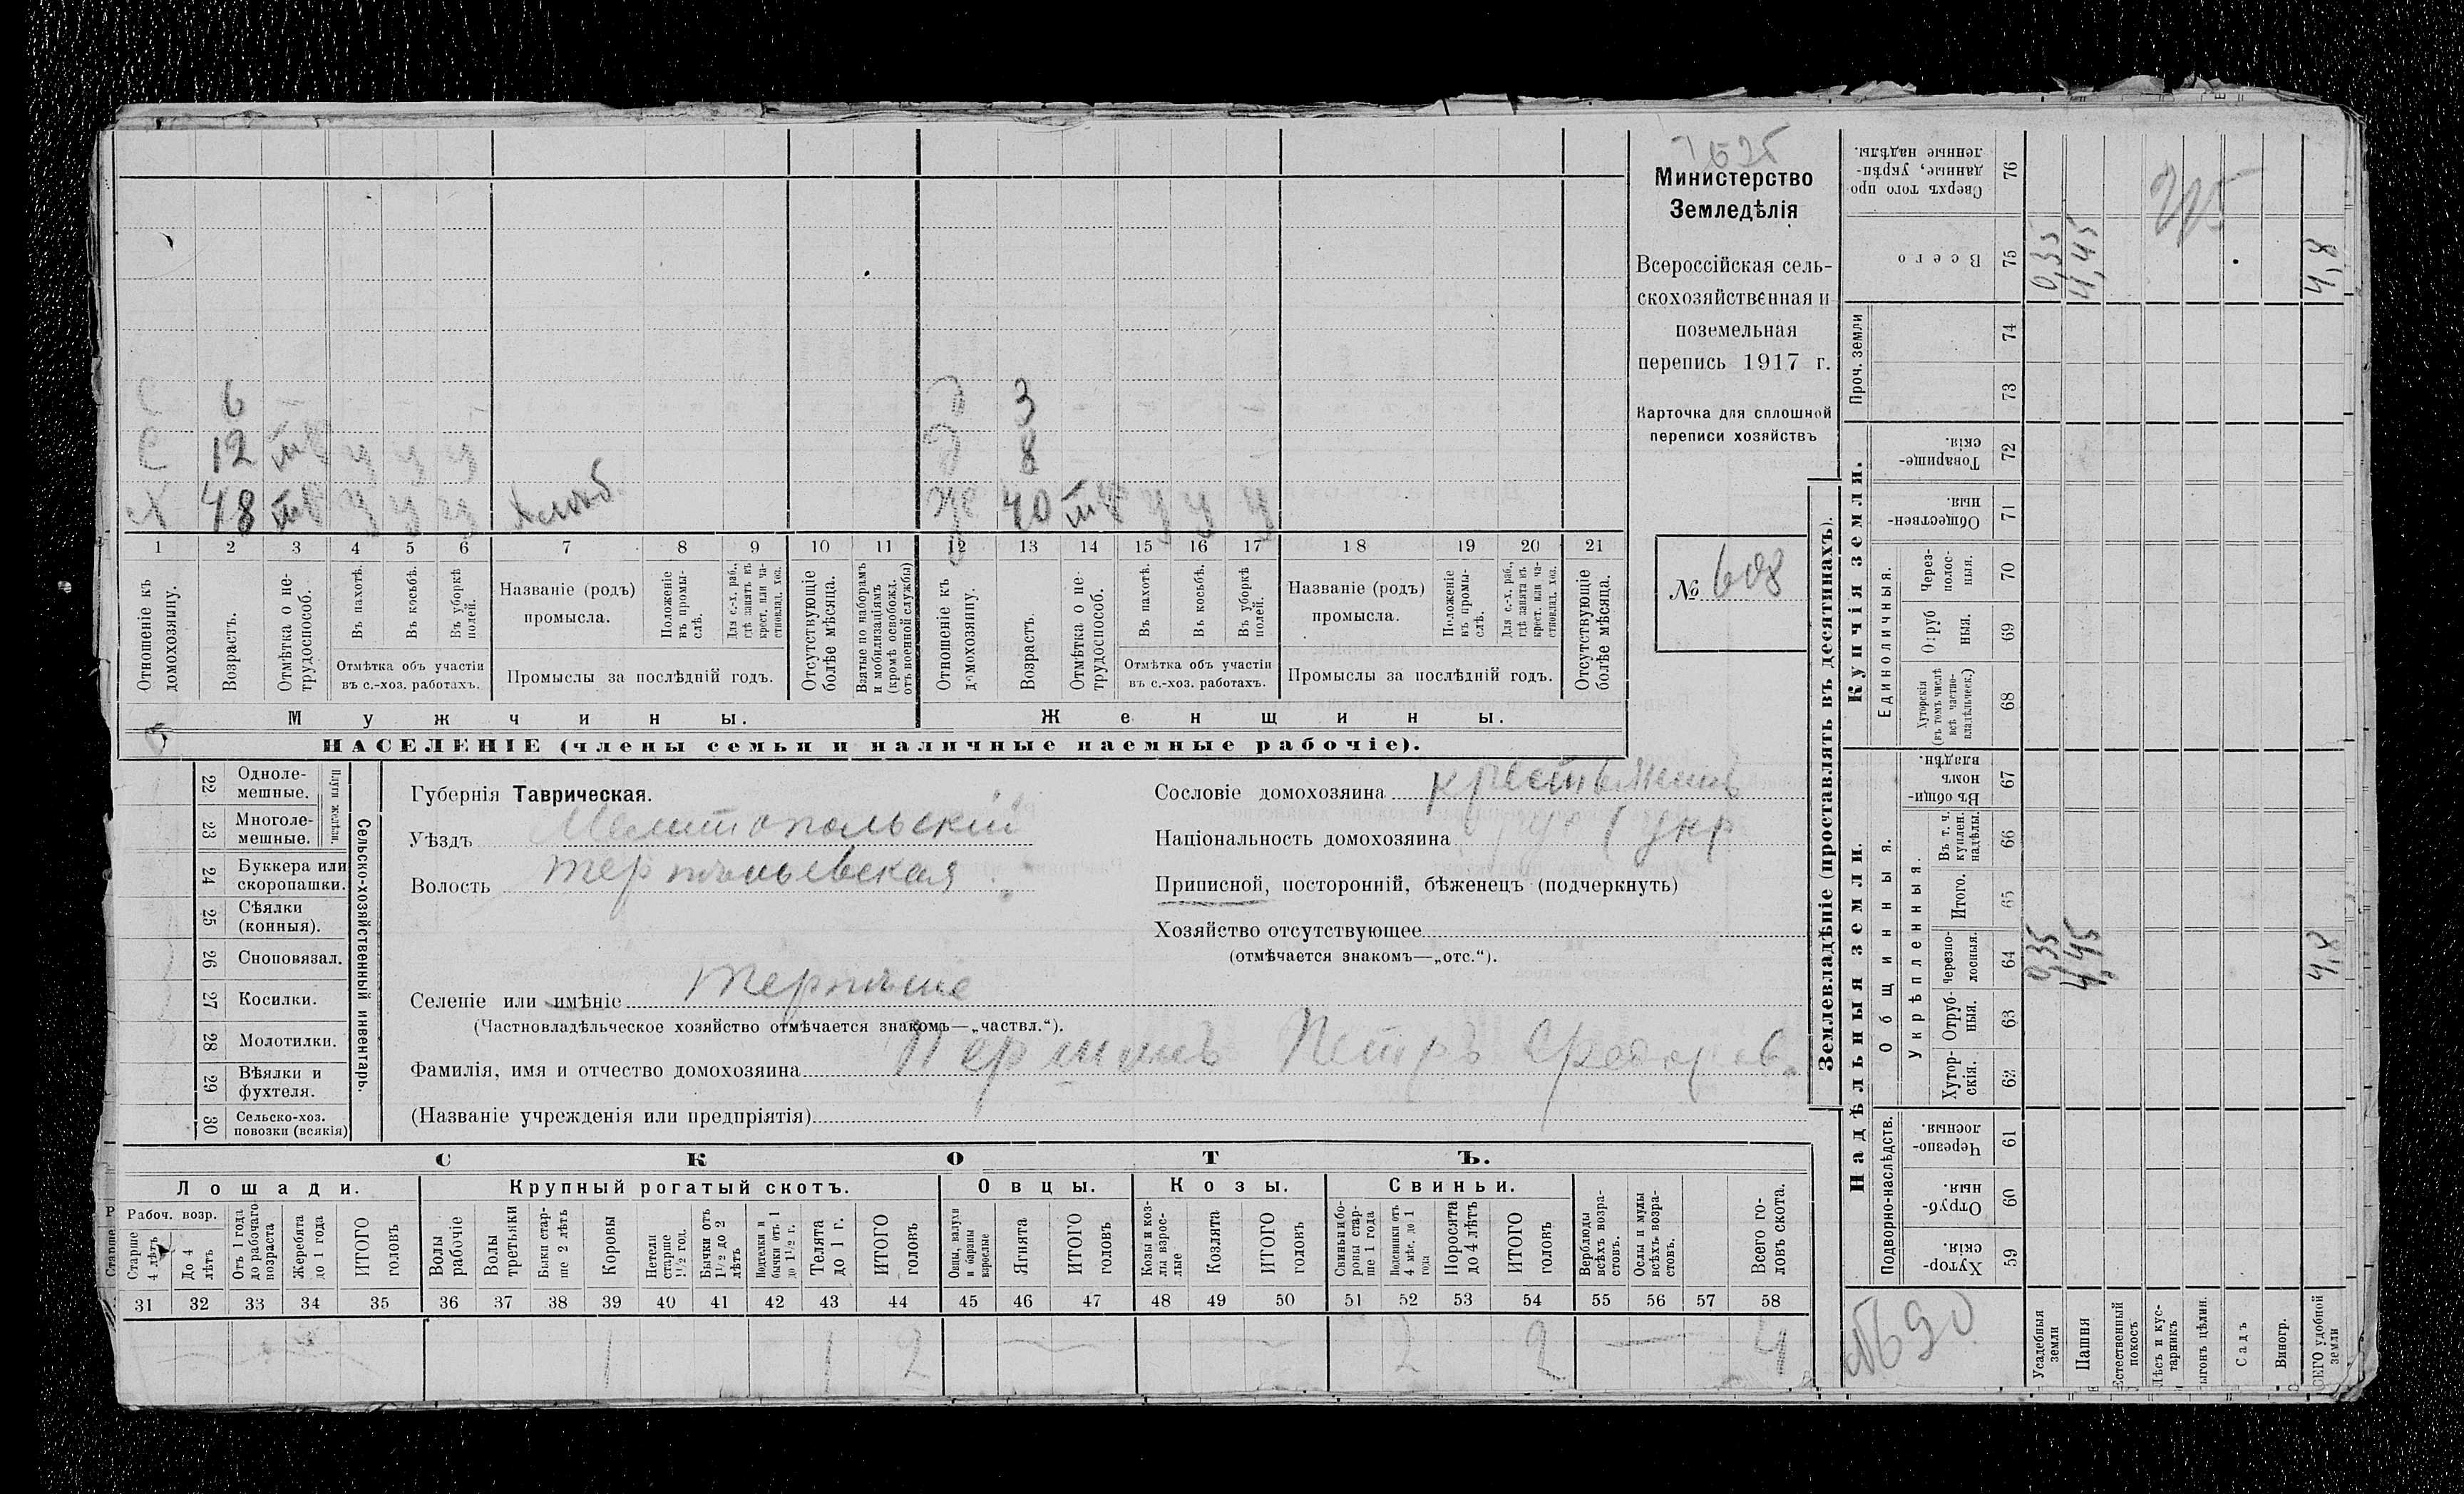 Министерство
Земледѣлія
Всероссійская сель-
скохозяйственная и
поземельная
перепись 1917 г.
Карточка для сплошной
переписи хозяйствъ
№ 608
С 6
С 12 у у у
Х 48 у у у
Д 3
Д 8
Ж 40 у у у
1 2 3 4 5 6 7 8 9 10 11 12 13 14 15 16 17 18 19 20 21
Отношеніе къ домохозяину.
Возрастъ.
Отмѣтка о не-трудоспособ.
Въ пахотѣ.
Въ косьбѣ.
Въ уборкѣ полей.
Отмѣтка объ участіи
въ с.-хоз. работахъ.
Названіе (родъ)
промысла.
Положеніе въ промы-слѣ.
Для с.-х. раб., гдѣ занятъ въ крест. или ча-стновлад. хоз.
Промыслы за послѣдній годъ.
Отсутствующіе болѣе мѣсяца.
Взятые по наборамъ и мобилизаціямъ (кромѣ освобожд. отъ военной службы)
Отношеніе къ домохозяину.
Возрастъ.
Отмѣтка о не-трудоспособ.
Въ пахотѣ.
Въ косьбѣ.
Въ уборкѣ полей.
Отмѣтка объ участіи
въ с.-хоз. работахъ.
Названіе (родъ)
промысла.
Положеніе въ промы-слѣ.
Для с.-х. раб., гдѣ занята въ крест. или ча-стновлад. хоз.
Промыслы за послѣдній годъ.
Отсутствующіе болѣе мѣсяца.
Мужчины.
Женщины.
НАСЕЛЕНІЕ (члены семьи и наличные наемные рабочіе).
Сельско-хозяйственный инвентарь.
22 Одноле-мешные.
23 Многоле-мешные.
24 Буккера или скоропашки.
25 Сѣялки (конныя).
26 Сноповязал.
27 Косилки.
28 Молотилки.
29 Вѣялки и фухтеля.
30 Сельско-хоз. повозки (всякія)
Губернія Таврическая.
Уѣздъ Мелитопольскій
Волость Терпеньевская
Селеніе или имѣніе Терпенье
(Частновладѣльческое хозяйство отмѣчается знакомъ—„частвл.“).
Фамилія, имя и отчество домохозяина Петръ Федоров.
(Названіе учрежденія или предпріятія)
Сословіе домохозяина крестьянинъ
Національность домохозяина укр
Приписной, посторонній, бѣженецъ (подчеркнуть)
Хозяйство отсутствующее
(отмѣчается знакомъ—„отс.“).
СКОТЪ.
Лошади.
Крупный рогатый скотъ.
Овцы.
Козы.
Свиньи.
Рабоч. возр.
Старше 4 лѣтъ
До 4 лѣтъ
Отъ 1 года до рабочаго возраста
Жеребята до 1 года
ИТОГО головъ
Волы рабочіе
Волы третьяки
Быки стар-ше 2 лѣтъ
Коровы
Нетели старше 1½ год.
Бычки отъ 1½ до 2 лѣтъ
Подтелки и бычки отъ 1 до 1½ г.
Телята до 1 г.
ИТОГО головъ
Овцы, валухи и бараны взрослые
Ягнята
ИТОГО головъ
Козы и коз-лы взрос-лые
Козлята
ИТОГО головъ
Свиньи и бо-ровы стар-ше 1 года
Подсвинки отъ 4 мѣс. до 1 года
Поросята до 4 лѣтъ
ИТОГО головъ
Верблюды всѣхъ возра-стовъ.
Ослы и мулы всѣхъ возра-стовъ.
Всего го-ловъ скота.
31 32 33 34 35 36 37 38 39 40 41 42 43 44 45 46 47 48 49 50 51 52 53 54 55 56 57 58
1 1 2 2 2 4
Землевладѣніе (проставлять въ десятинахъ).
Надѣльныя земли.
Купчія земли.
Проч. земли
Подворно-наслѣдств.
Общинныя.
Укрѣпленныя.
Единоличныя.
Хутор-скія. 59
Отруб-ныя. 60
Черезпо-лосныя. 61
Хутор-скія. 62
Отруб-ныя. 63
Черезпо-лосныя. 64
Итого. 65
Въ т. ч. куплен. надѣлы. 66
Въ общи-номъ владѣн. 67
Хуторскія (въ томъ числѣ всѣ частно-владѣльческ.) 68
Отруб ныя. 69
Через-полос-ныя. 70
Обществен-ныя. 71
Товарище-скія. 72
73
74
Всего 75
Сверхъ того про данные, укрѣп-ленные надѣлы. 76
№ 690
Усадебныя земли 0,35 0,35
Пашня 4,45 4,45
Естественный покосъ
Лѣсъ и кус-тарникъ
Выгонъ цѣлин.
Садъ
Виногр.
ВСЕГО удобной земли 4,8 4,8